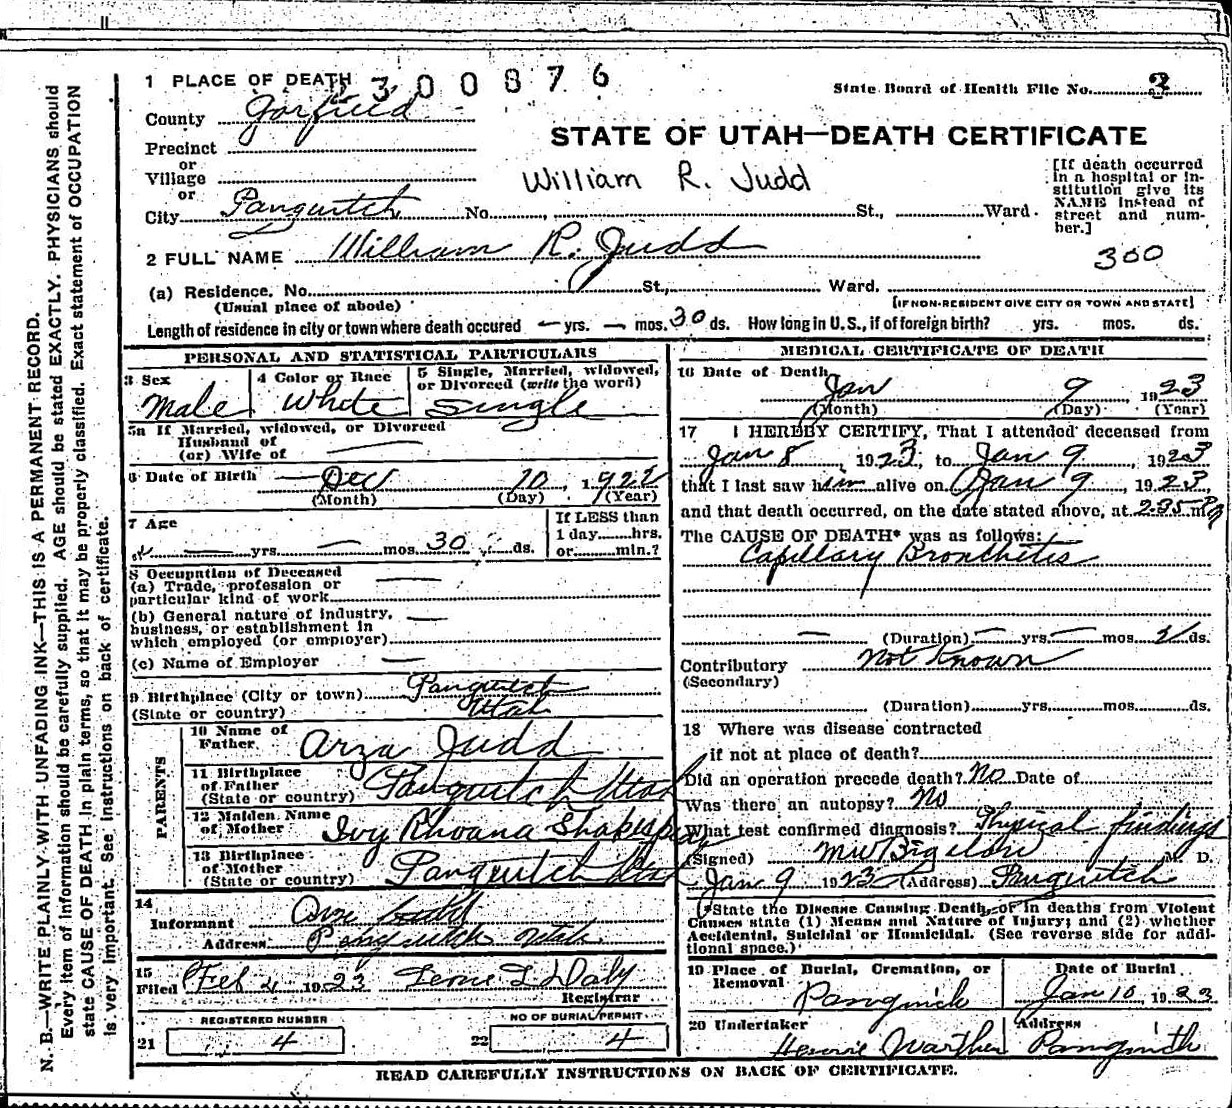 1 PLACE OF DEATH 2300876
State Board of Health File No. 3
County Garfield
STATE OF UTAH—DEATH CERTIFICATE
Precinct
or
Village
or
William R. Judd
[If death occurred in a hospital or institution give its NAME instead of street and number.]
City Panguitch No. , St., Ward.
2 FULL NAME William R. Judd
300
(a) Residence. No. St., Ward.
(Usual place of abode)
[IF NON-RESIDENT GIVE CITY OR TOWN AND STATE]
Length of residence in city or town where death occured — yrs. — mos. 30 ds. How long in U.S., if of foreign birth? yrs. mos. ds.
PERSONAL AND STATISTICAL PARTICULARS
3 Sex
Male
4 Color or Race
White
5 Single, Married, widowed,
or Divorced (write the word)
Single
5a If Married, widowed, or Divorced
Husband of
(or) Wife of —
6 Date of Birth — Dec 10, 1922
(Month) (Day) (Year)
7 Age
— yrs. — mos. 30 ds.
If LESS than
1 day hrs.
or min.?
8 Occupation of Deceased
(a) Trade, profession or
particular kind of work —
(b) General nature of industry,
business, or establishment in
which employed (or employer) —
(c) Name of Employer —
9 Birthplace (City or town) Panguitch
(State or country) Utah
PARENTS
10 Name of
Father Arza Judd
11 Birthplace
of Father
(State or country) Panguitch Utah
12 Maiden Name
of Mother Ivy Rhoana Shakespear
13 Birthplace
of Mother
(State or country) Panguitch Utah
14
Informant Arza Judd
Address Panguitch Utah
15
Filed Feb 4 1923 Daly
Registrar
REGISTERED NUMBER
21 4
NO OF BURIAL PERMIT
22 4
MEDICAL CERTIFICATE OF DEATH
16 Date of Death
Jan 9 1923
(Month) (Day) (Year)
17 I HEREBY CERTIFY, That I attended deceased from
Jan 8, 1923, to Jan 9, 1923
that I last saw him alive on Jan 9, 1923,
and that death occurred, on the date stated above, at 2.35 m
The CAUSE OF DEATH* was as follows:
Capillary Bronchitis
— (Duration) — yrs. — mos. 2 ds.
Contributory Not Known
(Secondary)
(Duration) yrs. mos. ds.
18 Where was disease contracted
if not at place of death?
Did an operation precede death? No Date of
Was there an autopsy? No
What test confirmed diagnosis? Physical findings
(Signed) M W Bigelow M D.
Jan 9 1923 (Address) Panguitch
(*State the Disease Causing Death, or in deaths from Violent
Causes state (1) Means and Nature of Injury; and (2) whether
Accidental, Suicidal or Homicidal. (See reverse side for addi-
tional space.)
19 Place of Burial, Cremation, or
Removal
Panguich
Date of Burial
Jan 10, 1923
20 Undertaker
Address
Panguich
READ CAREFULLY INSTRUCTIONS ON BACK OF CERTIFICATE.
N. B.—WRITE PLAINLY WITH UNFADING INK—THIS IS A PERMANENT RECORD.
Every item of information should be carefully supplied. AGE should be stated EXACTLY. PHYSICIANS should
state CAUSE OF DEATH in plain terms, so that it may be properly classified. Exact statement of OCCUPATION
is very important. See instructions on back of certificate.